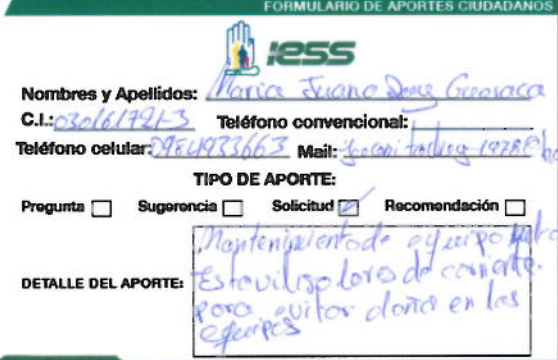 FORMULARIO DE APORTES CIUDADANOS
IESS
Nombres y Apellidos: Maria Juana
C.I.: 030161721-3 Teléfono convencional:
Teléfono celular: 0984933663 Mail:
TIPO DE APORTE:
Pregunta Sugerencia Solicitud Recomendación
Mantenimiento de equipo
DETALLE DEL APORTE: Estavilisadores de corriente.
para evitar daños en los
equipos